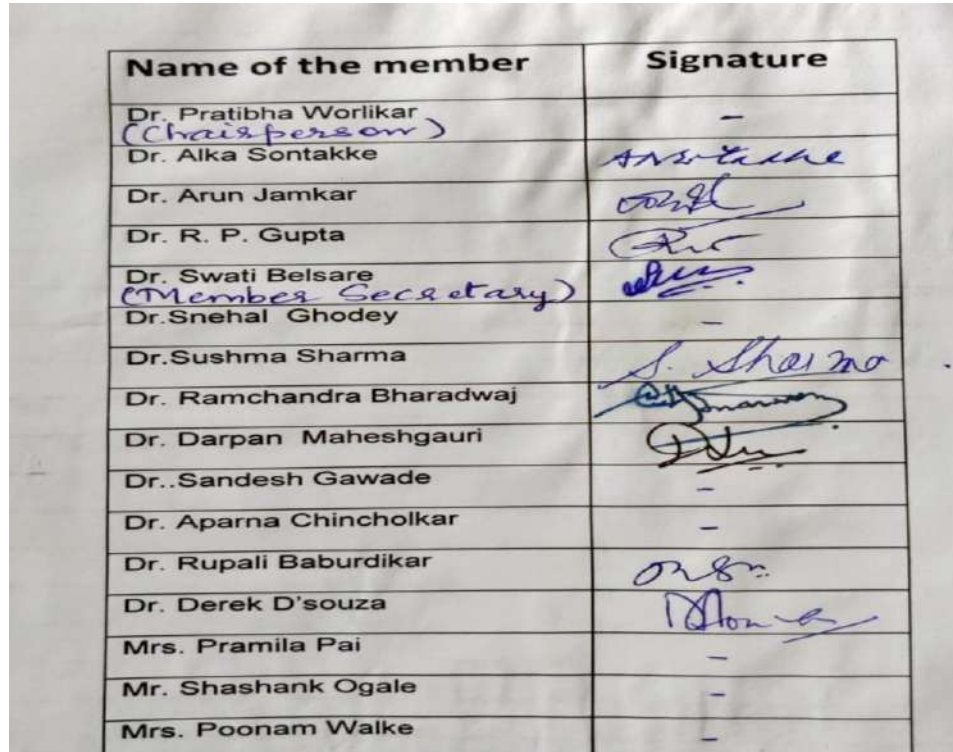 Name of the member Signature
Dr. Pratibha Worlikar -
(Chairperson)
Dr. Alka Sontakke
Dr. Arun Jamkar
Dr. R. P. Gupta
Dr. Swati Belsare
(Member Secretary)
Dr.Snehal Ghodey -
Dr.Sushma Sharma S. Sharma
Dr. Ramchandra Bharadwaj
Dr. Darpan Maheshgauri
Dr..Sandesh Gawade -
Dr. Aparna Chincholkar -
Dr. Rupali Baburdikar
Dr. Derek D'souza
Mrs. Pramila Pai -
Mr. Shashank Ogale -
Mrs. Poonam Walke -